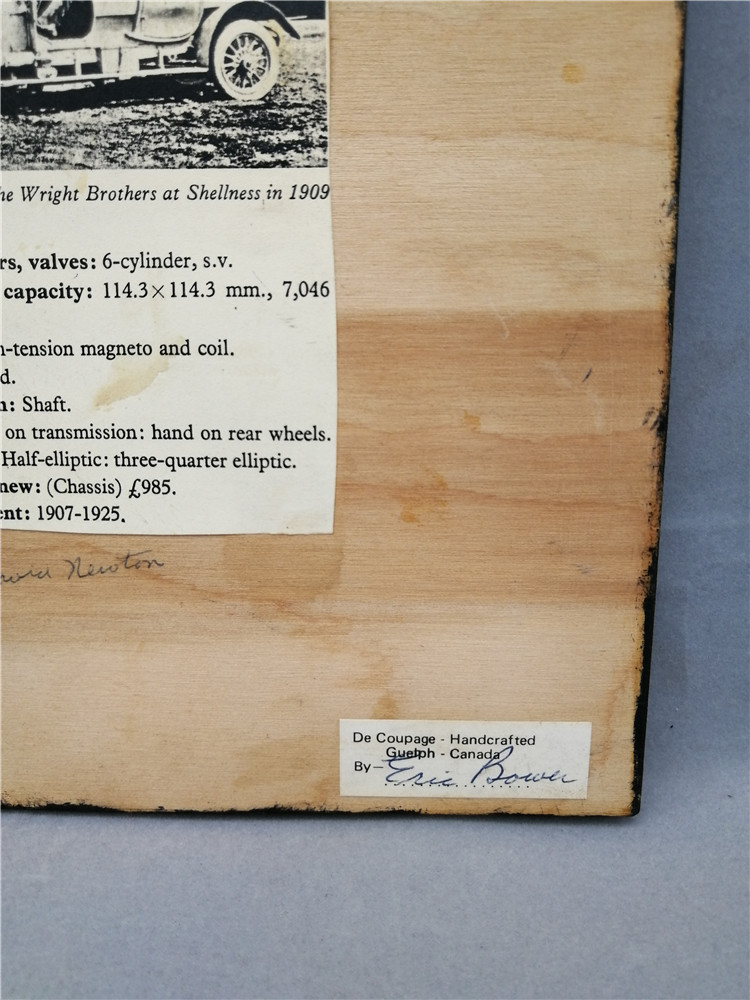 he Wright Brothers at Shellness in 1909
rs, valves: 6-cylinder, s.v.
capacity: 114.3×114.3 mm., 7,046
n-tension magneto and coil.
d.
n: Shaft.
on transmission: hand on rear wheels.
Half-elliptic: three-quarter elliptic.
new: (Chassis) £985.
ent: 1907-1925.
Newton
De Coupage - Handcrafted
Guelph - Canada
By— Eric Bower